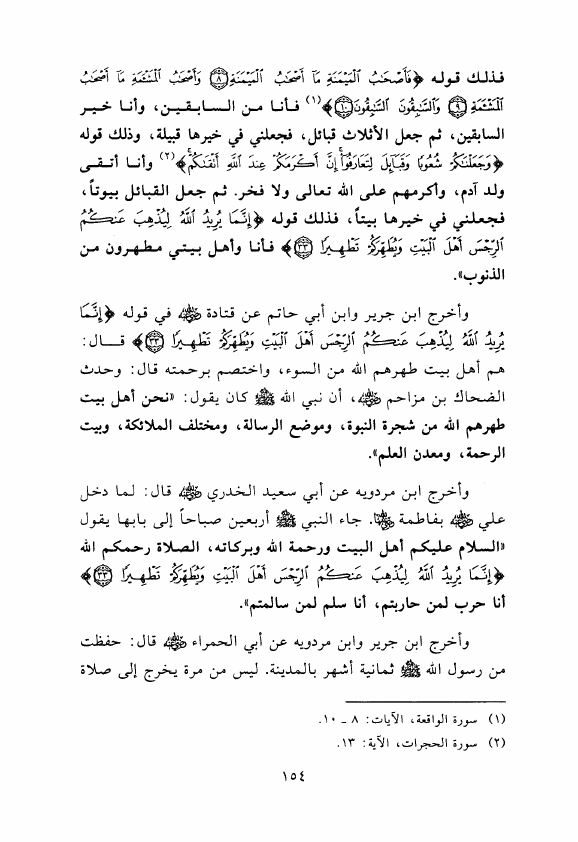 فذلك قوله ﴿فَأَصْحَٰبُ الْمَيْمَنَةِ مَا أَصْحَٰبُ الْمَيْمَنَةِ ۝٨ وَأَصْحَٰبُ الْمَشْـَٔمَةِ مَا أَصْحَٰبُ
الْمَشْـَٔمَةِ ۝٩ وَالسَّٰبِقُونَ السَّٰبِقُونَ ۝١٠﴾(١) فأنا من السابقين، وأنا خير
السابقين، ثم جعل الأثلاث قبائل، فجعلني في خيرها قبيلة، وذلك قوله
﴿وَجَعَلْنَٰكُمْ شُعُوبًا وَقَبَآئِلَ لِتَعَارَفُوٓا۟ إِنَّ أَكْرَمَكُمْ عِندَ اللَّهِ أَتْقَىٰكُمْ﴾(٢) وأنا أتقى
ولد آدم، وأكرمهم على الله تعالى ولا فخر. ثم جعل القبائل بيوتاً،
فجعلني في خيرها بيتاً، فذلك قوله ﴿إِنَّمَا يُرِيدُ اللَّهُ لِيُذْهِبَ عَنكُمُ
الرِّجْسَ أَهْلَ الْبَيْتِ وَيُطَهِّرَكُمْ تَطْهِيرًا ۝٣٣﴾ فأنا وأهل بيتي مطهرون من
الذنوب».
وأخرج ابن جرير وابن أبي حاتم عن قتادة رضي الله عنه في قوله ﴿إِنَّمَا
يُرِيدُ اللَّهُ لِيُذْهِبَ عَنكُمُ الرِّجْسَ أَهْلَ الْبَيْتِ وَيُطَهِّرَكُمْ تَطْهِيرًا ۝٣٣﴾ قال:
هم أهل بيت طهرهم الله من السوء، واختصم برحمته قال: وحدث
الضحاك بن مزاحم رضي الله عنه، أن نبي الله ﷺ كان يقول: «نحن أهل بيت
طهرهم الله من شجرة النبوة، وموضع الرسالة، ومختلف الملائكة، وبيت
الرحمة، ومعدن العلم».
وأخرج ابن مردويه عن أبي سعيد الخدري رضي الله عنه قال: لما دخل
علي رضي الله عنه بفاطمة رضي الله عنها. جاء النبي ﷺ أربعين صباحاً إلى بابها يقول
«السلام عليكم أهل البيت ورحمة الله وبركاته، الصلاة رحمكم الله
﴿إِنَّمَا يُرِيدُ اللَّهُ لِيُذْهِبَ عَنكُمُ الرِّجْسَ أَهْلَ الْبَيْتِ وَيُطَهِّرَكُمْ تَطْهِيرًا ۝٣٣﴾
أنا حرب لمن حاربتم، أنا سلم لمن سالمتم».
وأخرج ابن جرير وابن مردويه عن أبي الحمراء رضي الله عنه قال: حفظت
من رسول الله ﷺ ثمانية أشهر بالمدينة. ليس من مرة يخرج إلى صلاة
(١) سورة الواقعة، الآيات: ٨ ـ ١٠.
(٢) سورة الحجرات، الآية: ١٣.
١٥٤